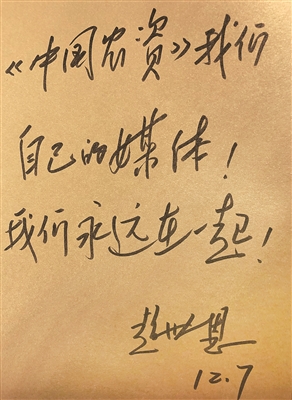 《中国农资》我们
自己的媒体！
我们永远在一起！
12.7